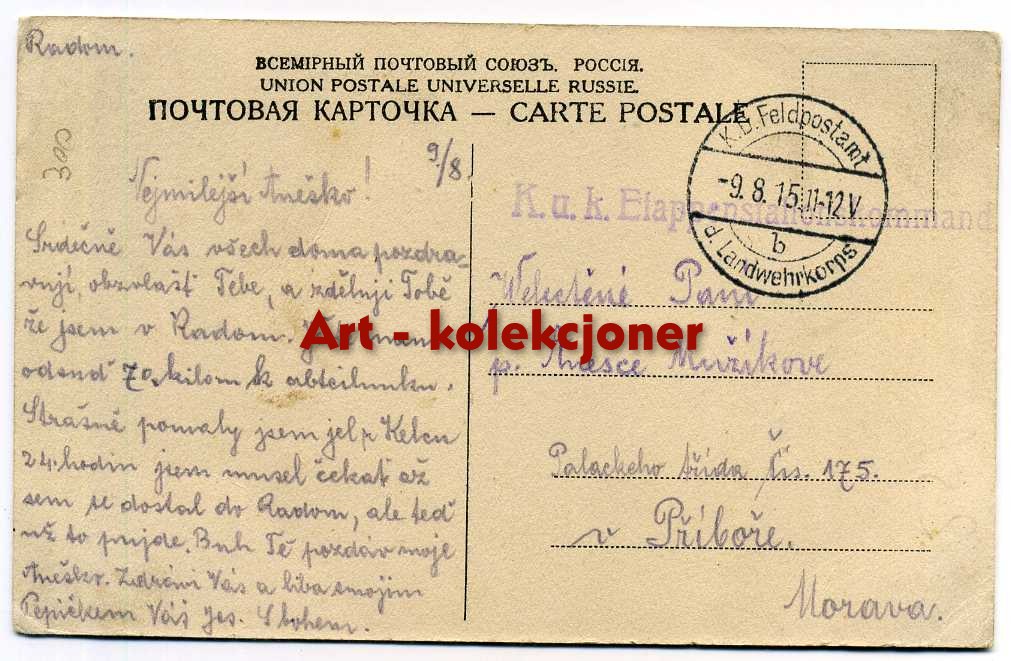 Radom.
ВСЕМІРНЫЙ ПОЧТОВЫЙ СОЮЗЪ. РОССІЯ.
UNION POSTALE UNIVERSELLE RUSSIE.
ПОЧТОВАЯ КАРТОЧКА — CARTE POSTALE
300
9/8
K.D. Feldpostamt
-9.8.15.11-12V.
b
d. Landwehrkorps
K. u. k. Etappenstationskommando
Nejmilejší Aneško!
Srdečně Vás všech doma pozdra-
vuji, obzvlašť Tebe, a zděluji Tobě
že jsem v Radom.
odsud 70 kilom k abteilunku.
Strašně pomaly jsem jel z Kelcu
24 hodin jsem musel čekat až
sem se dostal do Radom, ale teď
už to pujde. Buh Tě pozdáv moje
Aneško. Zdrávi Vás a liba
Pepíčkem Váš Jos. Sbohem.
Velectěné Paní
p. Anešce Mužikove
Palackeho třída Čis. 175.
v Příboře.
Morava.
Art - kolekcjoner